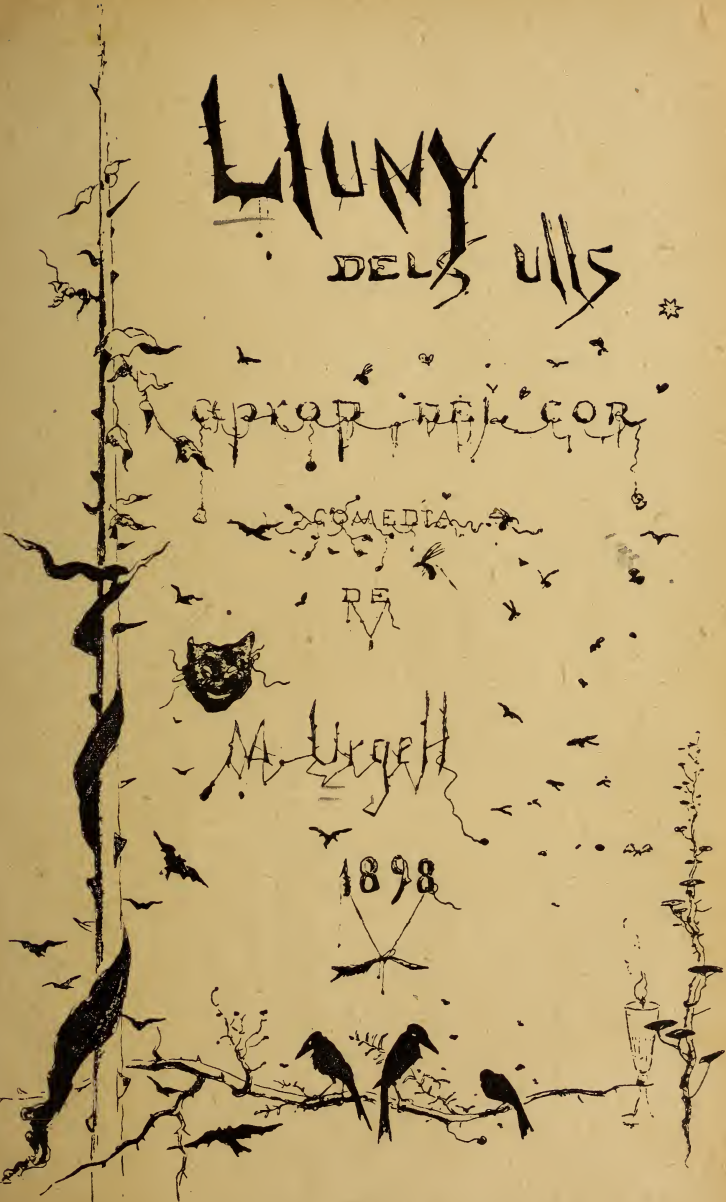 Lluny
DELS Ulls
aprop DEL COR
COMEDIA
DE
M. Urgell
1898